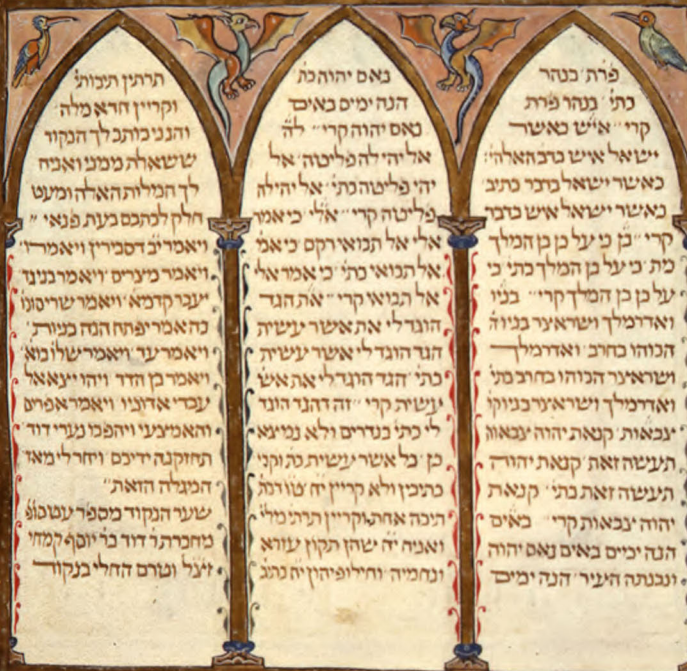 פרת בנהר
כתי בנהר פרת
קרי איש כאשר
ישאל איש בדבר האלהי׳
כאשר ישאל בדבר כתיב
כאשר ישאל איש בדבר
קרי בן כי על כן בן המלך
מת כי על בן המלך כתי כי
על כן בן המלך קרי בניו
ואדרמלך ושראצר בניו ה
הכוהו בחרב ואדרמלך
ושראצר הכוהו בחרב כתי
ואדרמלך ושראצר בניו קרי
צבאות קנאת יהוה צבאות
תעשה זאת קנאת יהוה
תעשה זאת כתי קנאת
יהוה צבאות קרי באים
הנה ימים באים נאם יהוה
ונבנתה העיר הנה ימים
נאם יהוה כת
הנה ימים באים
נאם יהוה קרי לה
אל יהי לה פליטה אל
יהי פליטה כתי אל יהי לה
פליטה קרי אלי כי אמר
אלי אל תבואי רקם כי אמ
אל תבואי כתי כי אמר אלי
אל תבואי קרי את הגד
הוגד לי את אשר עשית
הגד הוגד לי אשר עשית
כתי הגד הוגד לי את אש
עשית קרי זה דהגד הוגד
לי כתי בנדרים ולא נמיצא
כן כל אשר עשית כת וקרי
כתיבין ולא קריין יח
תיבה אחת וקריין תרתי מלי
ואניח יה שהן תקון עזרא
ונחמיה וחילופיהון יה כתב
תרתין תיבות
וקריין חדא מלה
והנני כותב לך הנקוד
ששאלת ממני ואניח
לך המילות האלה ומעט
חלק לכתבם בעת פנאי
ויאמר יב דסבירין ויאמרו
ויאמר מצרים ויאמר בנינד
יעבר קדמא ויאמר שריסונו
כה אמר יפתח הנה בניות
ויאמר עד ויאמר שלו מא
ויאמר בן הדד ויהי יצא אל
עבדי אדוניו ויאמר אפרים
והאמצעי ויהפכו נערי דוד
תחזקנה ידיכם ויחר לי מאד
המגלה הזאת
שער הנקוד מספר עט סופ
מחברת ר דוד בר יוסף קמחי
זצל וטרם החלי בנקוד